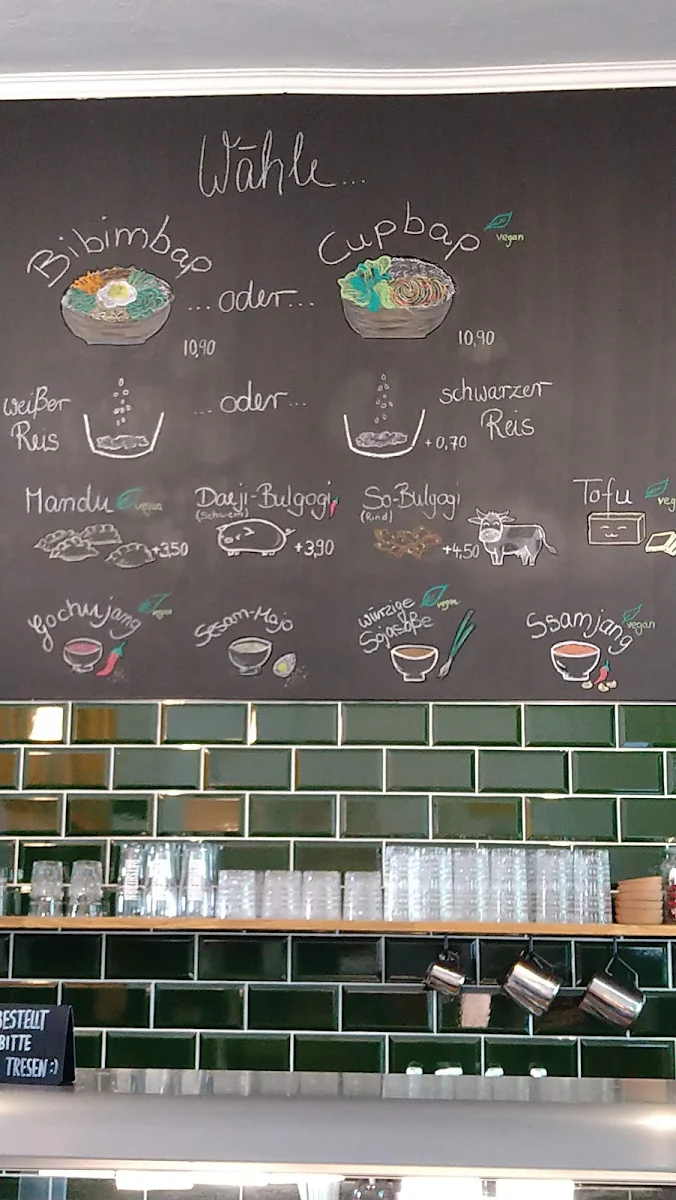 Wähle...
Bibimbap
Cupbap
vegan
...oder...
10,90
10,90
weißer
Reis
...oder...
schwarzer
Reis
+0,70
Mandu
vegan
+3,50
Daeji-Bulgogi
(Schwein)
+3,90
So-Bulgogi
(Rind)
+4,50
Tofu
Gochujang
vegan
Sesam-Majo
würzige
Sojasoße
vegan
Ssamjang
vegan
BITTE
TRESEN :)